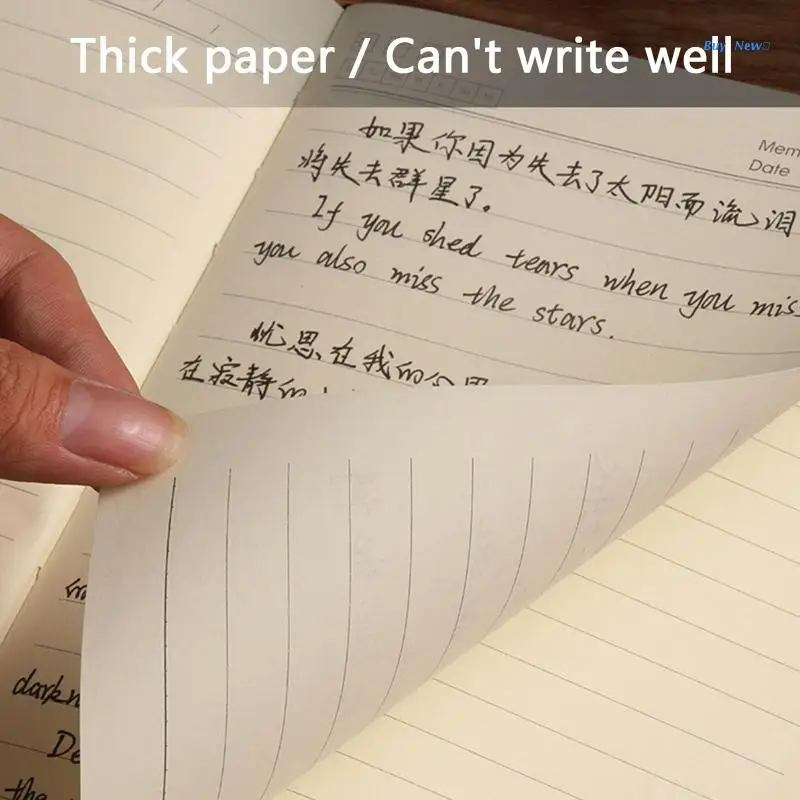 Thick paper / Can't write well
Buy New
Mem
Date
如果你因为失去了太阳而流泪
将失去群星了。
If you shed tears when you mis
you also miss the stars.
忧思在我的心里
在寂静的
darkn
De
the